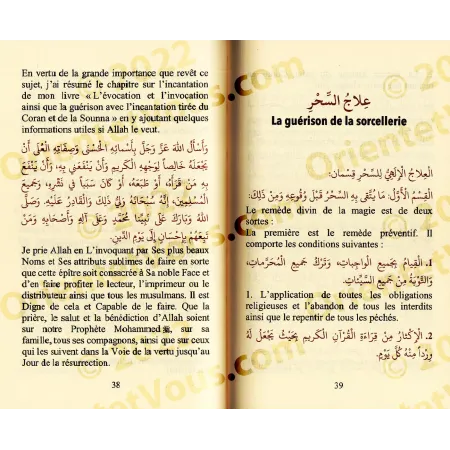 En vertu de la grande importance que revêt ce
sujet, j'ai résumé le chapitre sur l'incantation
de mon livre « L'évocation et l'invocation
ainsi que la guérison avec l'incantation tirée du
Coran et de la Sounna » en y ajoutant quelques
informations utiles si Allah le veut.
وَأَسْأَلُ اللهَ عَزَّ وَجَلَّ بِأَسْمَائِهِ الْحُسْنَى وَصِفَاتِهِ الْعُلَى أَنْ
يَجْعَلَهُ خَالِصاً لِوَجْهِهِ الْكَرِيمِ وَأَنْ يَنْفَعَنِي بِهِ، وَأَنْ يَنْفَعَ
بِهِ مَنْ قَرَأَهُ، أَوْ طَبَعَهُ، أَوْ كَانَ سَبَباً فِي نَشْرِهِ، وَجَمِيعَ
الْمُسْلِمِينَ، إِنَّهُ سُبْحَانَهُ وَلِيُّ ذَلِكَ وَالْقَادِرُ عَلَيْهِ. وَصَلَّى
اللهُ وَبَارَكَ عَلَى نَبِيِّنَا مُحَمَّدٍ وَعَلَى آلِهِ وَأَصْحَابِهِ وَمَنْ
تَبِعَهُمْ بِإِحْسَانٍ إِلَى يَوْمِ الدِّينِ.
Je prie Allah en L'invoquant par Ses plus beaux
Noms et Ses attributs sublimes de faire en sorte
que cette épître soit consacrée à Sa noble Face et
d'en faire profiter le lecteur, l'imprimeur ou le
distributeur ainsi que tous les musulmans. Il est
Digne de cela et Capable de le faire. Que la
prière, le salut et la bénédiction d'Allah soient
sur notre Prophète Mohammed ﷺ, sur sa
famille, tous ses compagnons, ainsi que sur ceux
qui les suivent dans la Voie de la vertu jusqu'au
Jour de la résurrection.
38
عِلَاجُ السِّحْرِ
La guérison de la sorcellerie
الْعِلَاجُ الْإِلَهِيُّ لِلسِّحْرِ قِسْمَانِ:
الْقِسْمُ الْأَوَّلُ: مَا يُتَّقَى بِهِ السِّحْرُ قَبْلَ وُقُوعِهِ وَمِنْ ذَلِكَ:
Le remède divin de la magie est de deux
sortes :
La première est le remède préventif. Il
comporte les conditions suivantes :
1. الْقِيَامُ بِجَمِيعِ الْوَاجِبَاتِ، وَتَرْكُ جَمِيعِ الْمُحَرَّمَاتِ،
وَالتَّوْبَةُ مِنْ جَمِيعِ السَّيِّئَاتِ.
1. L'application de toutes les obligations
religieuses et l'abandon de tous les interdits
ainsi que le repentir de tous les péchés.
2. الْإِكْثَارُ مِنْ قِرَاءَةِ الْقُرْآنِ الْكَرِيمِ بِحَيْثُ يَجْعَلُ لَهُ
وِرْداً مِنْهُ كُلَّ يَوْمٍ.
39
© 2022
OrientetVous.com